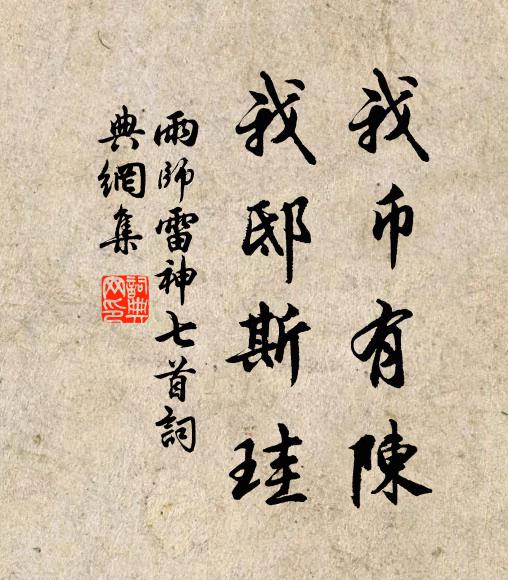 我币有陳
我邸斯珪
雨師雷神七首詞
典網集
詞典網印